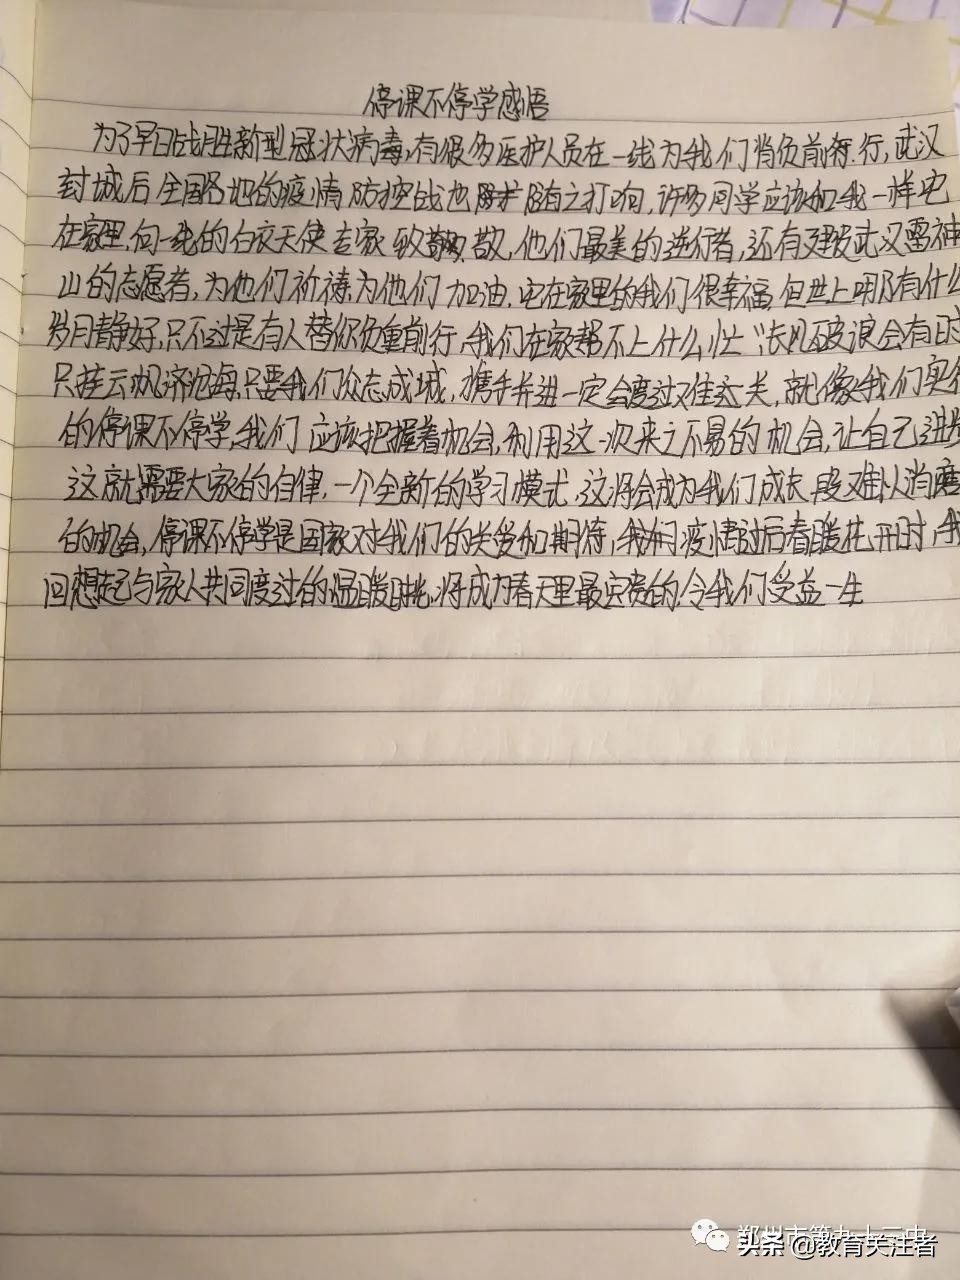 停课不停学感悟
为了早日战胜新型冠状病毒,有很多医护人员在一线为我们背负前行.武汉
封城后全国各地的疫情防控战也随之打响,许多同学应该和我一样宅
在家里.向一线的白衣天使专家致敬,他们最美的逆行者,还有建设武汉雷神
山的志愿者,为他们祈祷为他们加油.宅在家里的我们很幸福,但世上哪有什么
岁月静好,只不过是有人替你负重前行,我们在家帮不上什么忙"长风破浪会有时
只挂云帆济沧海,只要我们众志成城,携手并进一定会度过难这关,就像我们实行
的停课不停学,我们应该把握着机会,利用这一次来之不易的机会,让自己进步
这就需要大家的自律,一个全新的学习模式,这将会成为我们成长段难以消磨
的机会,停课不停学是国家对我们的关爱和期待,我们疫情过后春暖花开时,我
回想起与家人共同度过的温暖时光,将成为春天里最宝贵的.令我们受益一生
郑州市第九十三中
头条@教育关注者